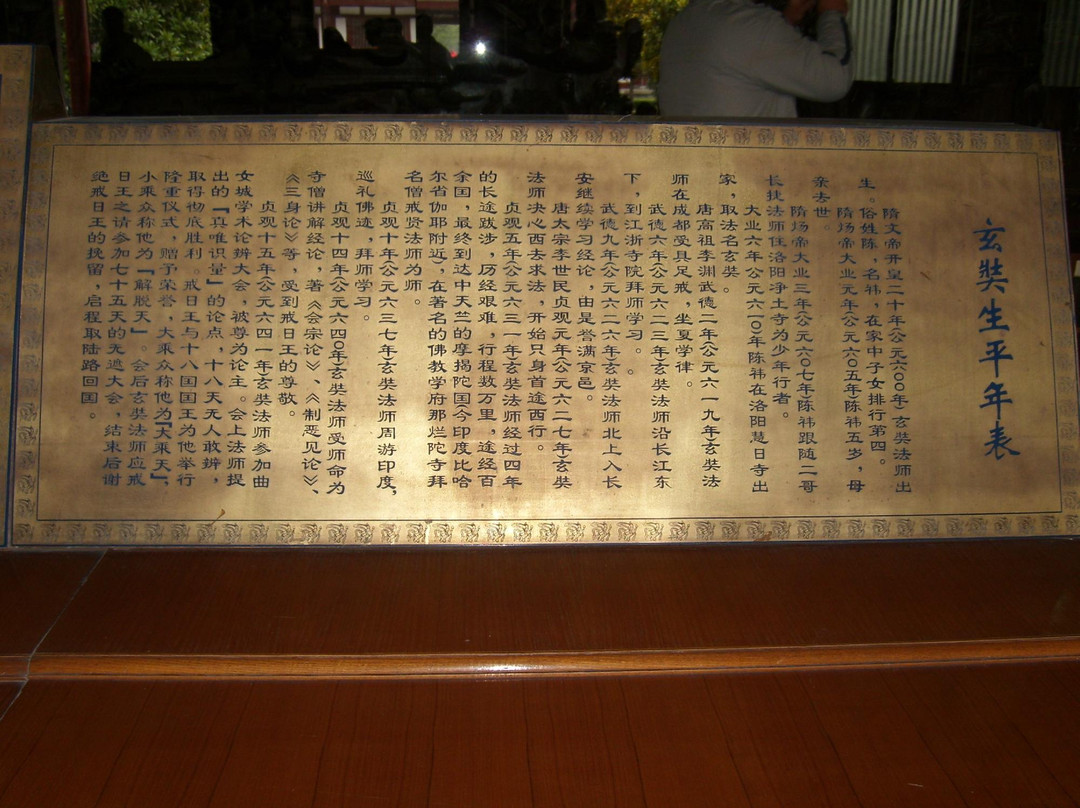 玄奘生平年表
隋文帝开皇二十年(公元六〇〇年)玄奘法师出
生。俗姓陈，名祎，在家中子女排行第四。
隋炀帝大业元年(公元六〇五年)陈祎五岁，母
亲去世。
隋炀帝大业三年(公元六〇七年)陈祎跟随二哥
长捷法师住洛阳净土寺为少年行者。
大业六年(公元六一〇年)陈祎在洛阳慧日寺出
家，取法名玄奘。
唐高祖李渊武德二年(公元六一九年)玄奘法
师在成都受具足戒，坐夏学律。
武德六年(公元六二三年)玄奘法师沿长江东
下，到江浙寺院拜师学习。
武德九年(公元六二六年)玄奘法师北上入长
安继续学习经论，由是誉满京邑。
唐太宗李世民贞观元年(公元六二七年)玄奘
法师决心西去求法，开始只身首途西行。
贞观五年(公元六三一年)玄奘法师经过四年
的长途跋涉，历经艰难，行程数万里，途经百
余国，最终到达中天竺的摩揭陀国(今印度比哈
尔省伽耶附近)，在著名的佛教学府那烂陀寺拜
名僧戒贤法师为师。
贞观十年(公元六三七年)玄奘法师周游印度，
巡礼佛迹，拜师学习。
贞观十四年(公元六四〇年)玄奘法师受师命为
寺僧讲解经论，著《会宗论》、《制恶见论》、
《三身论》等，受到戒日王的尊敬。
贞观十五年(公元六四一年)玄奘法师参加曲
女城学术论辨大会，被尊为论主。会上法师提
出的『真唯识量』的论点，十八天无人敢辨，
取得彻底胜利。戒日王与十八国国王为他举行
隆重仪式，赠予荣誉，大乘众称他为『大乘天』，
小乘众称他为『解脱天』。会后玄奘法师应戒
日王之请参加七十五天的无遮大会，结束后谢
绝戒日王的挽留，启程取陆路回国。